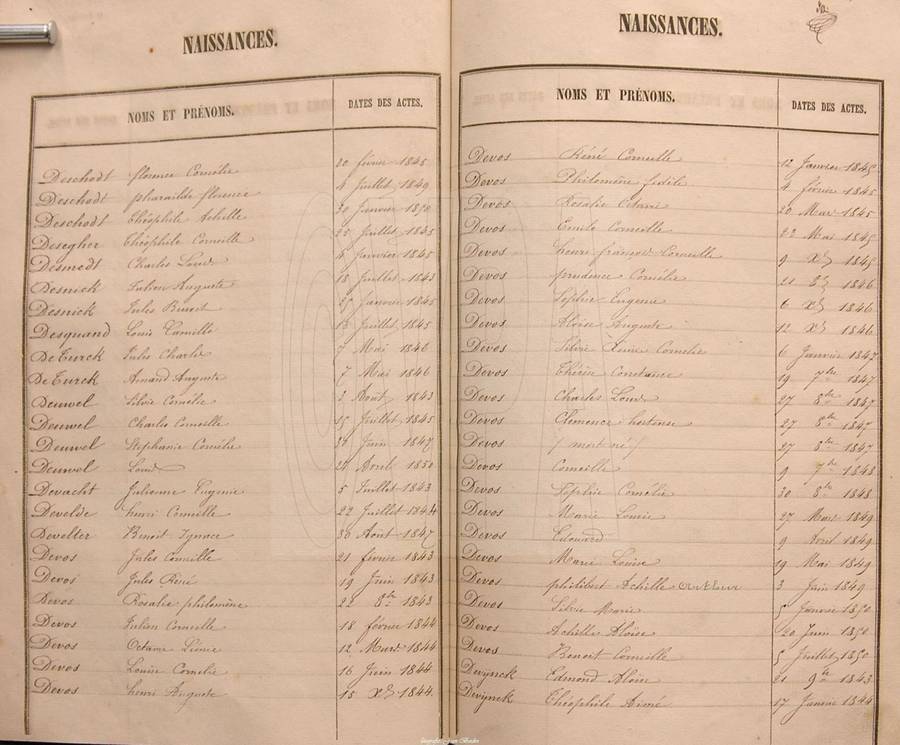 NAISSANCES.
NOMS ET PRÉNOMS. DATES DES ACTES.
Deschodt florence Cornélie 20 février 1845
Deschodt pharailde florence 4 Juillet 1849
Deschodt théophile Achille 30 Janvier 1850
Desegher théophile Corneille 25 Juillet 1845
Desmedt Charles Louis 4 Janvier 1845
Desnick Julien Auguste 18 Juillet 1843
Desnick Jules Benoit 27 Janvier 1845
Desquand Louis Camille 13 Juillet 1845
De Turck Jules Charles 7 Mai 1846
De Turck Amand Auguste 7 Mai 1846
Deuwel Silvie Cornélie 3 Août 1843
Deuwel Charles Corneille 15 Juillet 1845
Deuwel Stephanie Cornélie Juin 1847
Deuwel Louis Avril 1850
Devacht Julienne Eugenie 5 Juillet 1843
Develde henri Corneille 22 Juillet 1844
Develter Benoit Ignace 30 Août 1847
Devos Jules Corneille 21 février 1843
Devos Jules René 19 Juin 1843
Devos Rosalie philomène 22 8bre 1843
Devos Julien Corneille 18 février 1844
Devos Octavie Léonie 12 Mars 1844
Devos Louise Cornélie 16 Juin 1844
Devos henri Auguste 15 Xbre 1844
NAISSANCES.
NOMS ET PRÉNOMS. DATES DES ACTES.
Devos Réné Corneille 12 Janvier 1845
Devos Philomène fidéle 4 février 1845
Devos Rosalie Octavie 20 Mars 1845
Devos Emile Corneille 22 Mai 1845
Devos henri françois Corneille 9 Xbre 1845
Devos prudence Cornélie 21 8bre 1846
Devos Sophie Eugenie 6 Xbre 1846
Devos Aloïse Auguste 12 Xbre 1846
Devos Silvie Xenie Cornelie 6 Janvier 1847
Devos Thérèse Constance 19 7bre 1847
Devos Charles Louis 27 8bre 1847
Devos Clemence hortense 27 8bre 1847
Devos (mort né) 27 8bre 1847
Devos Corneille 9 7bre 1848
Devos Sophie Cornélie 30 8bre 1848
Devos Marie Louise 27 Mars 1849
Devos Edouard 9 Avril 1849
Devos Marie Louise 19 Mai 1849
Devos philibert Achille 3 Juin 1849
Devos Silvie Marie 5 Janvier 1850
Devos Achille Aloïse 20 Juin 1850
Devos Benoit Corneille 5 Juillet 1850
Devynck Edmond Aloïse 21 9bre 1843
Devynck Théophile Aimé 17 Janvier 1844